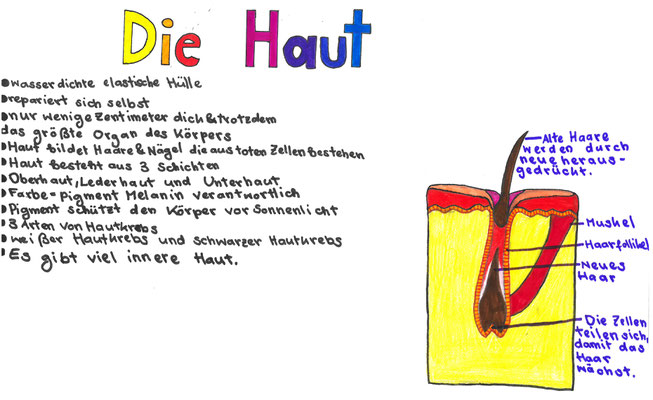 Die Haut
wasserdichte elastische Hülle
repariert sich selbst
nur wenige Zentimeter dick & trotzdem
das größte Organ des Körpers
Haut bildet Haare & Nägel die aus toten Zellen bestehen
Haut besteht aus 3 Schichten
Oberhaut, Lederhaut und Unterhaut
Farbe = pigment Melanin verantwortlich
Pigment schützt den Körper vor Sonnenlicht
3 Arten von Hautkrebs
weißer Hautkrebs und schwarzer Hautkrebs
Es gibt viel innere Haut.
Alte Haare
werden durch
neue heraus-
gedrückt.
Muskel
Haarfollikel
Neues
Haar
Die Zellen
teilen sich,
damit das
Haar
wächst.